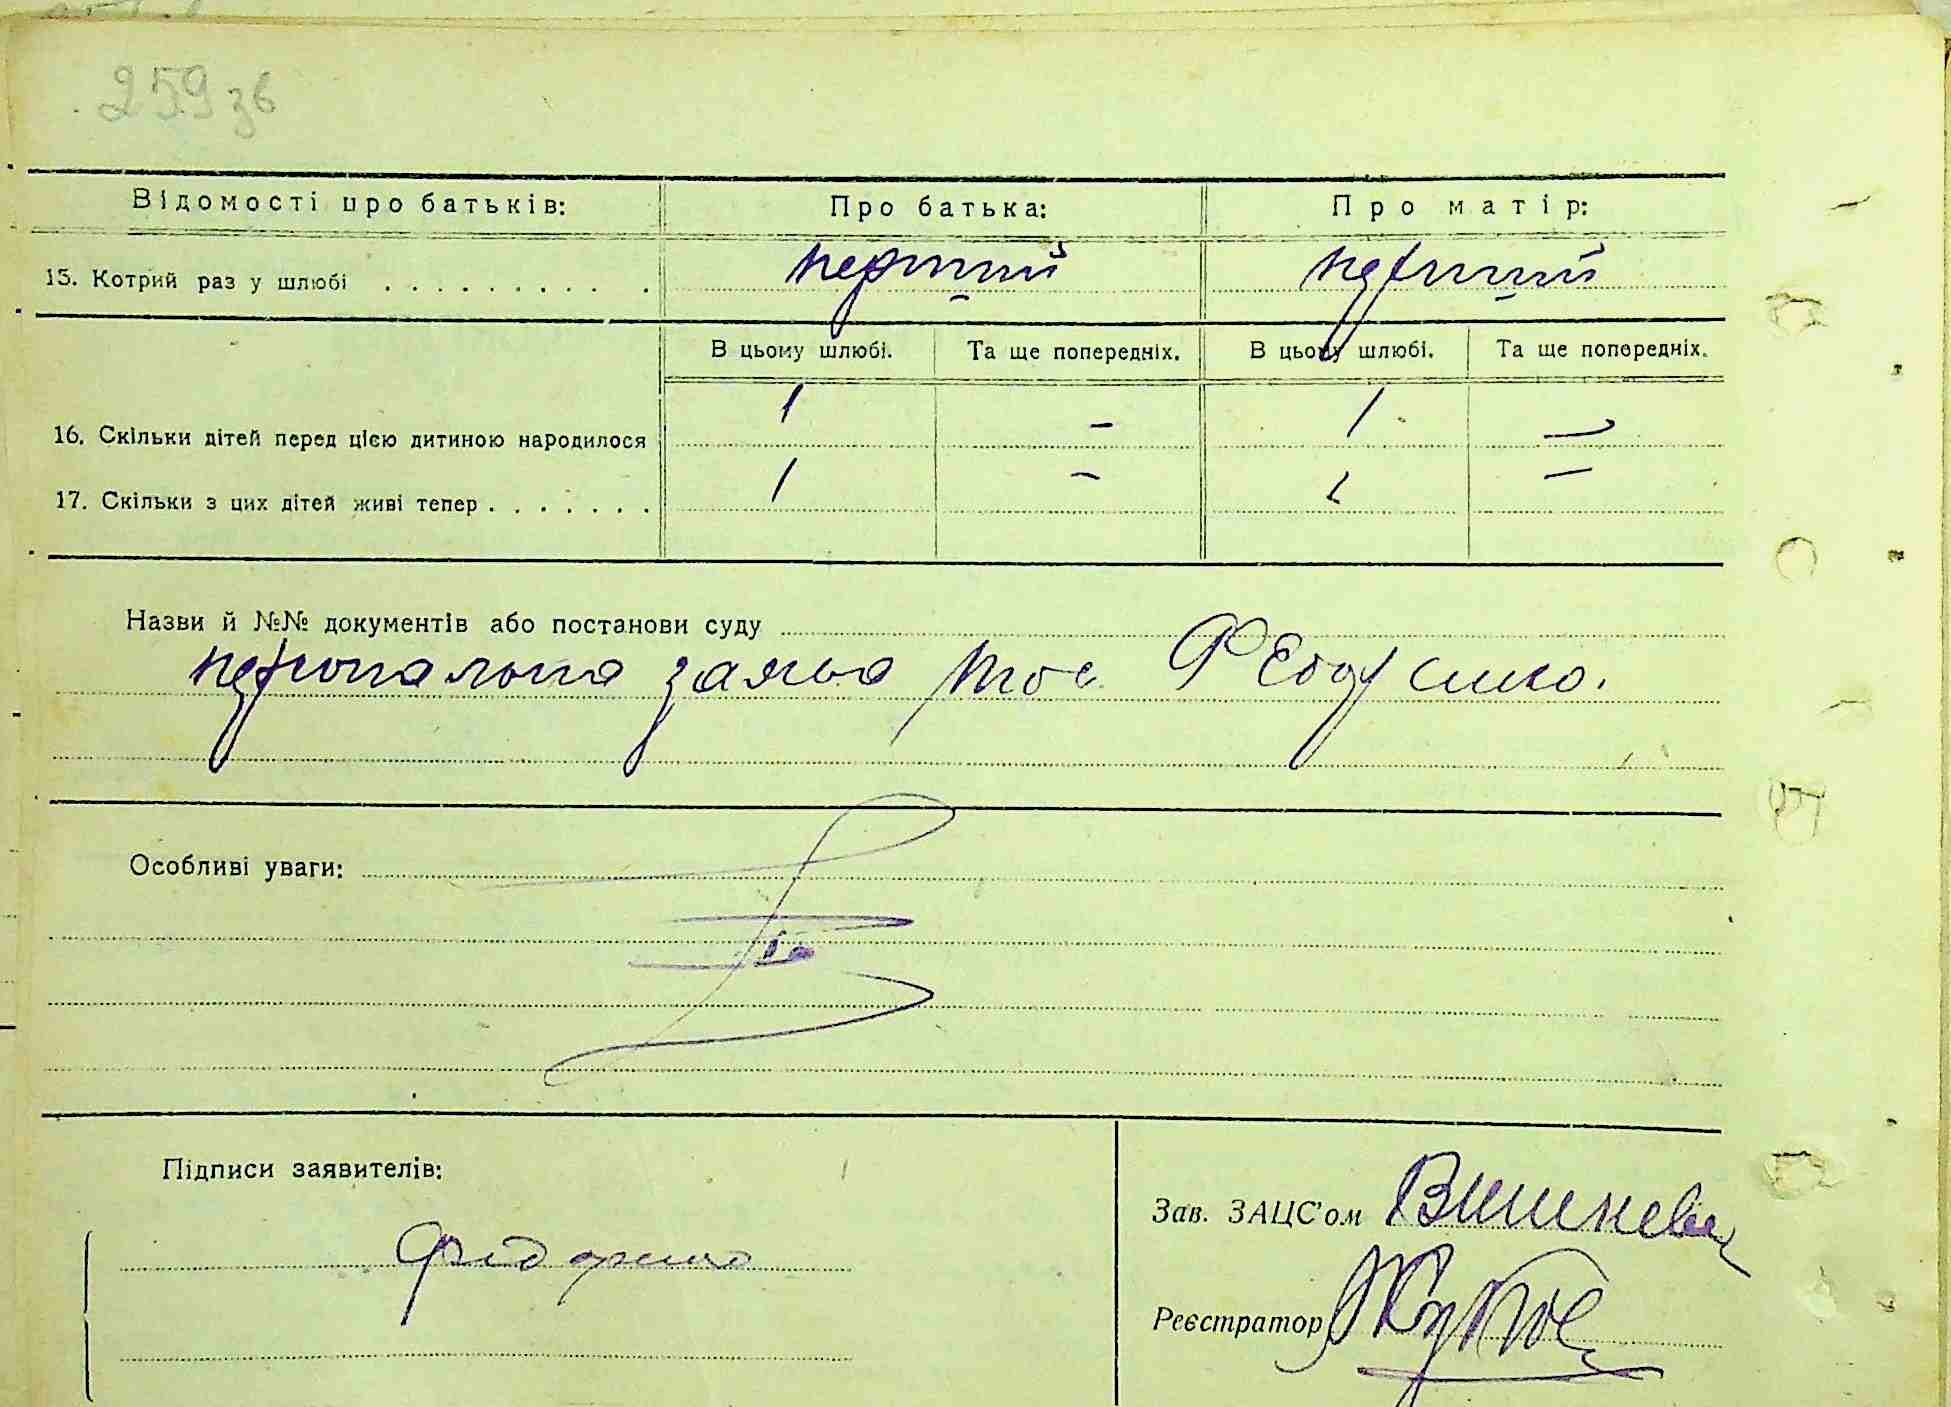 259 зв
Відомості про батьків: Про батька: Про матір:
15. Котрий раз у шлюбі . . . . . . . . . . перший перший
В цьому шлюбі. Та ще попередніх. В цьому шлюбі. Та ще попередніх.
16. Скільки дітей перед цією дитиною народилося 1 – 1 –
17. Скільки з цих дітей живі тепер . . . . . . . 1 – 1 –
Назви й №№ документів або постанови суду
персональна заява тов. Федоренко.
Особливі уваги:
Підписи заявителів:
Зав. ЗАЦС'ом
Федоренко
Реєстратор